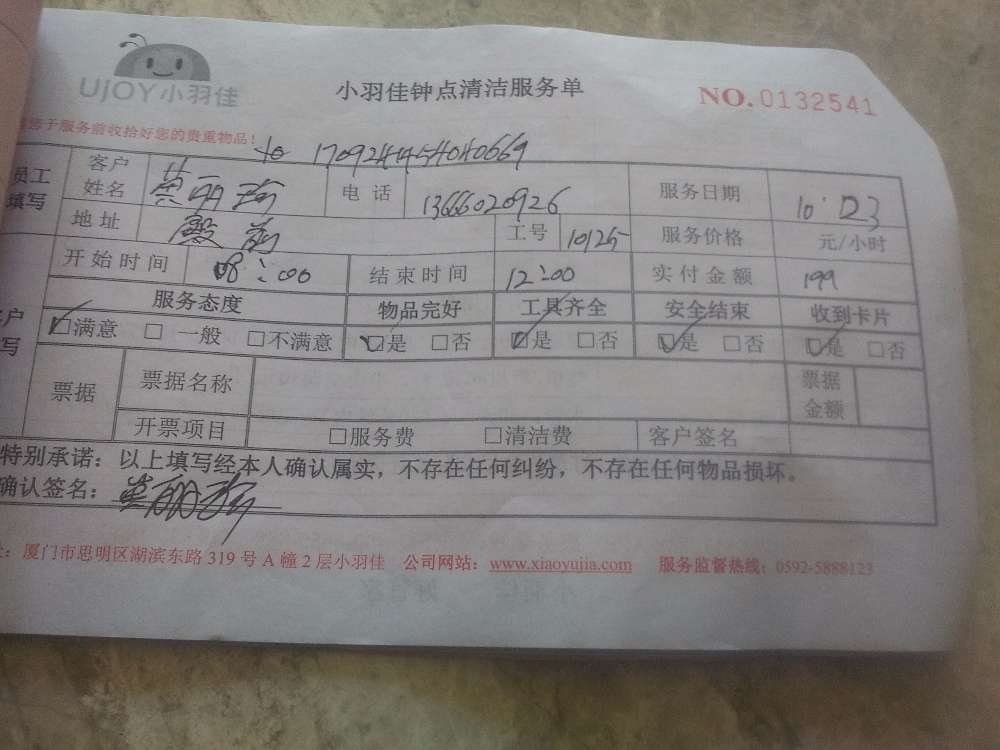 UJOY小羽佳
小羽佳钟点清洁服务单
NO.0132541
于服务前收拾好您的贵重物品！
1709244454040669
员工填写 客户姓名 电话 13666020926 服务日期 10 23
地址 工号 10125 服务价格 元/小时
开始时间 08:00 结束时间 12:00 实付金额 199
服务态度 物品完好 工具齐全 安全结束 收到卡片
☑满意 □一般 □不满意 ☑是 □否 ☑是 □否 ☑是 □否 ☑是 □否
票据 票据名称 票据金额
开票项目 □服务费 □清洁费 客户签名
特别承诺：以上填写经本人确认属实，不存在任何纠纷，不存在任何物品损坏。
确认签名：
厦门市思明区湖滨东路 319 号 A 幢 2 层小羽佳 公司网站：www.xiaoyujia.com 服务监督热线：0592-5888123